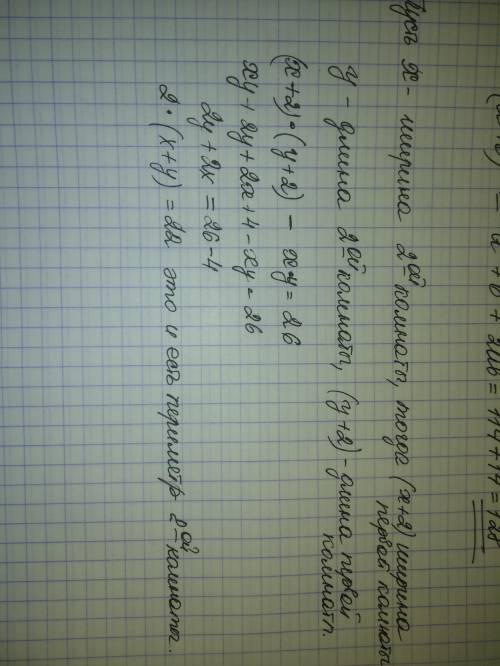 a² + b² + 2ab = 114 + 14 = 128
Пусть x - ширина 2ой комнаты, тогда (x+2) ширина
первой комнаты
y - длина 2ой комнаты, (y+2) - длина первой
комнаты.
(x+2)·(y+2) - xy = 26
xy + 2y + 2x + 4 - xy = 26
2y + 2x = 26-4
2·(x+y) = 22 это и есть периметр 2ой комнаты.